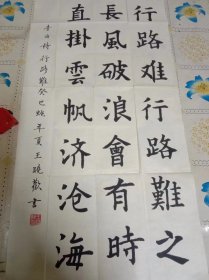 行路难行路難之
長風破浪會有時
直掛雲帆济沧海
李白诗行路難癸巳蛇年夏王曉歡書